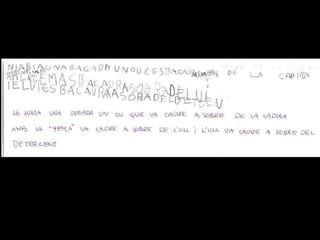 NIABIAUNABAGADAUNOUCESBACAU DE LA CADIRA
AMLAGEMASBACAURASOBRADELUII
IELUIESBACAURAASORADEL
HI HAVIA UNA VEGADA UN OU QUE VA CAURE A SOBRE DE LA CADIRA
AMB LA "YEMA" VA CAURE A SOBRE DE L'ULL I L'ULL VA CAURE A SOBRE DEL
DETERGENT